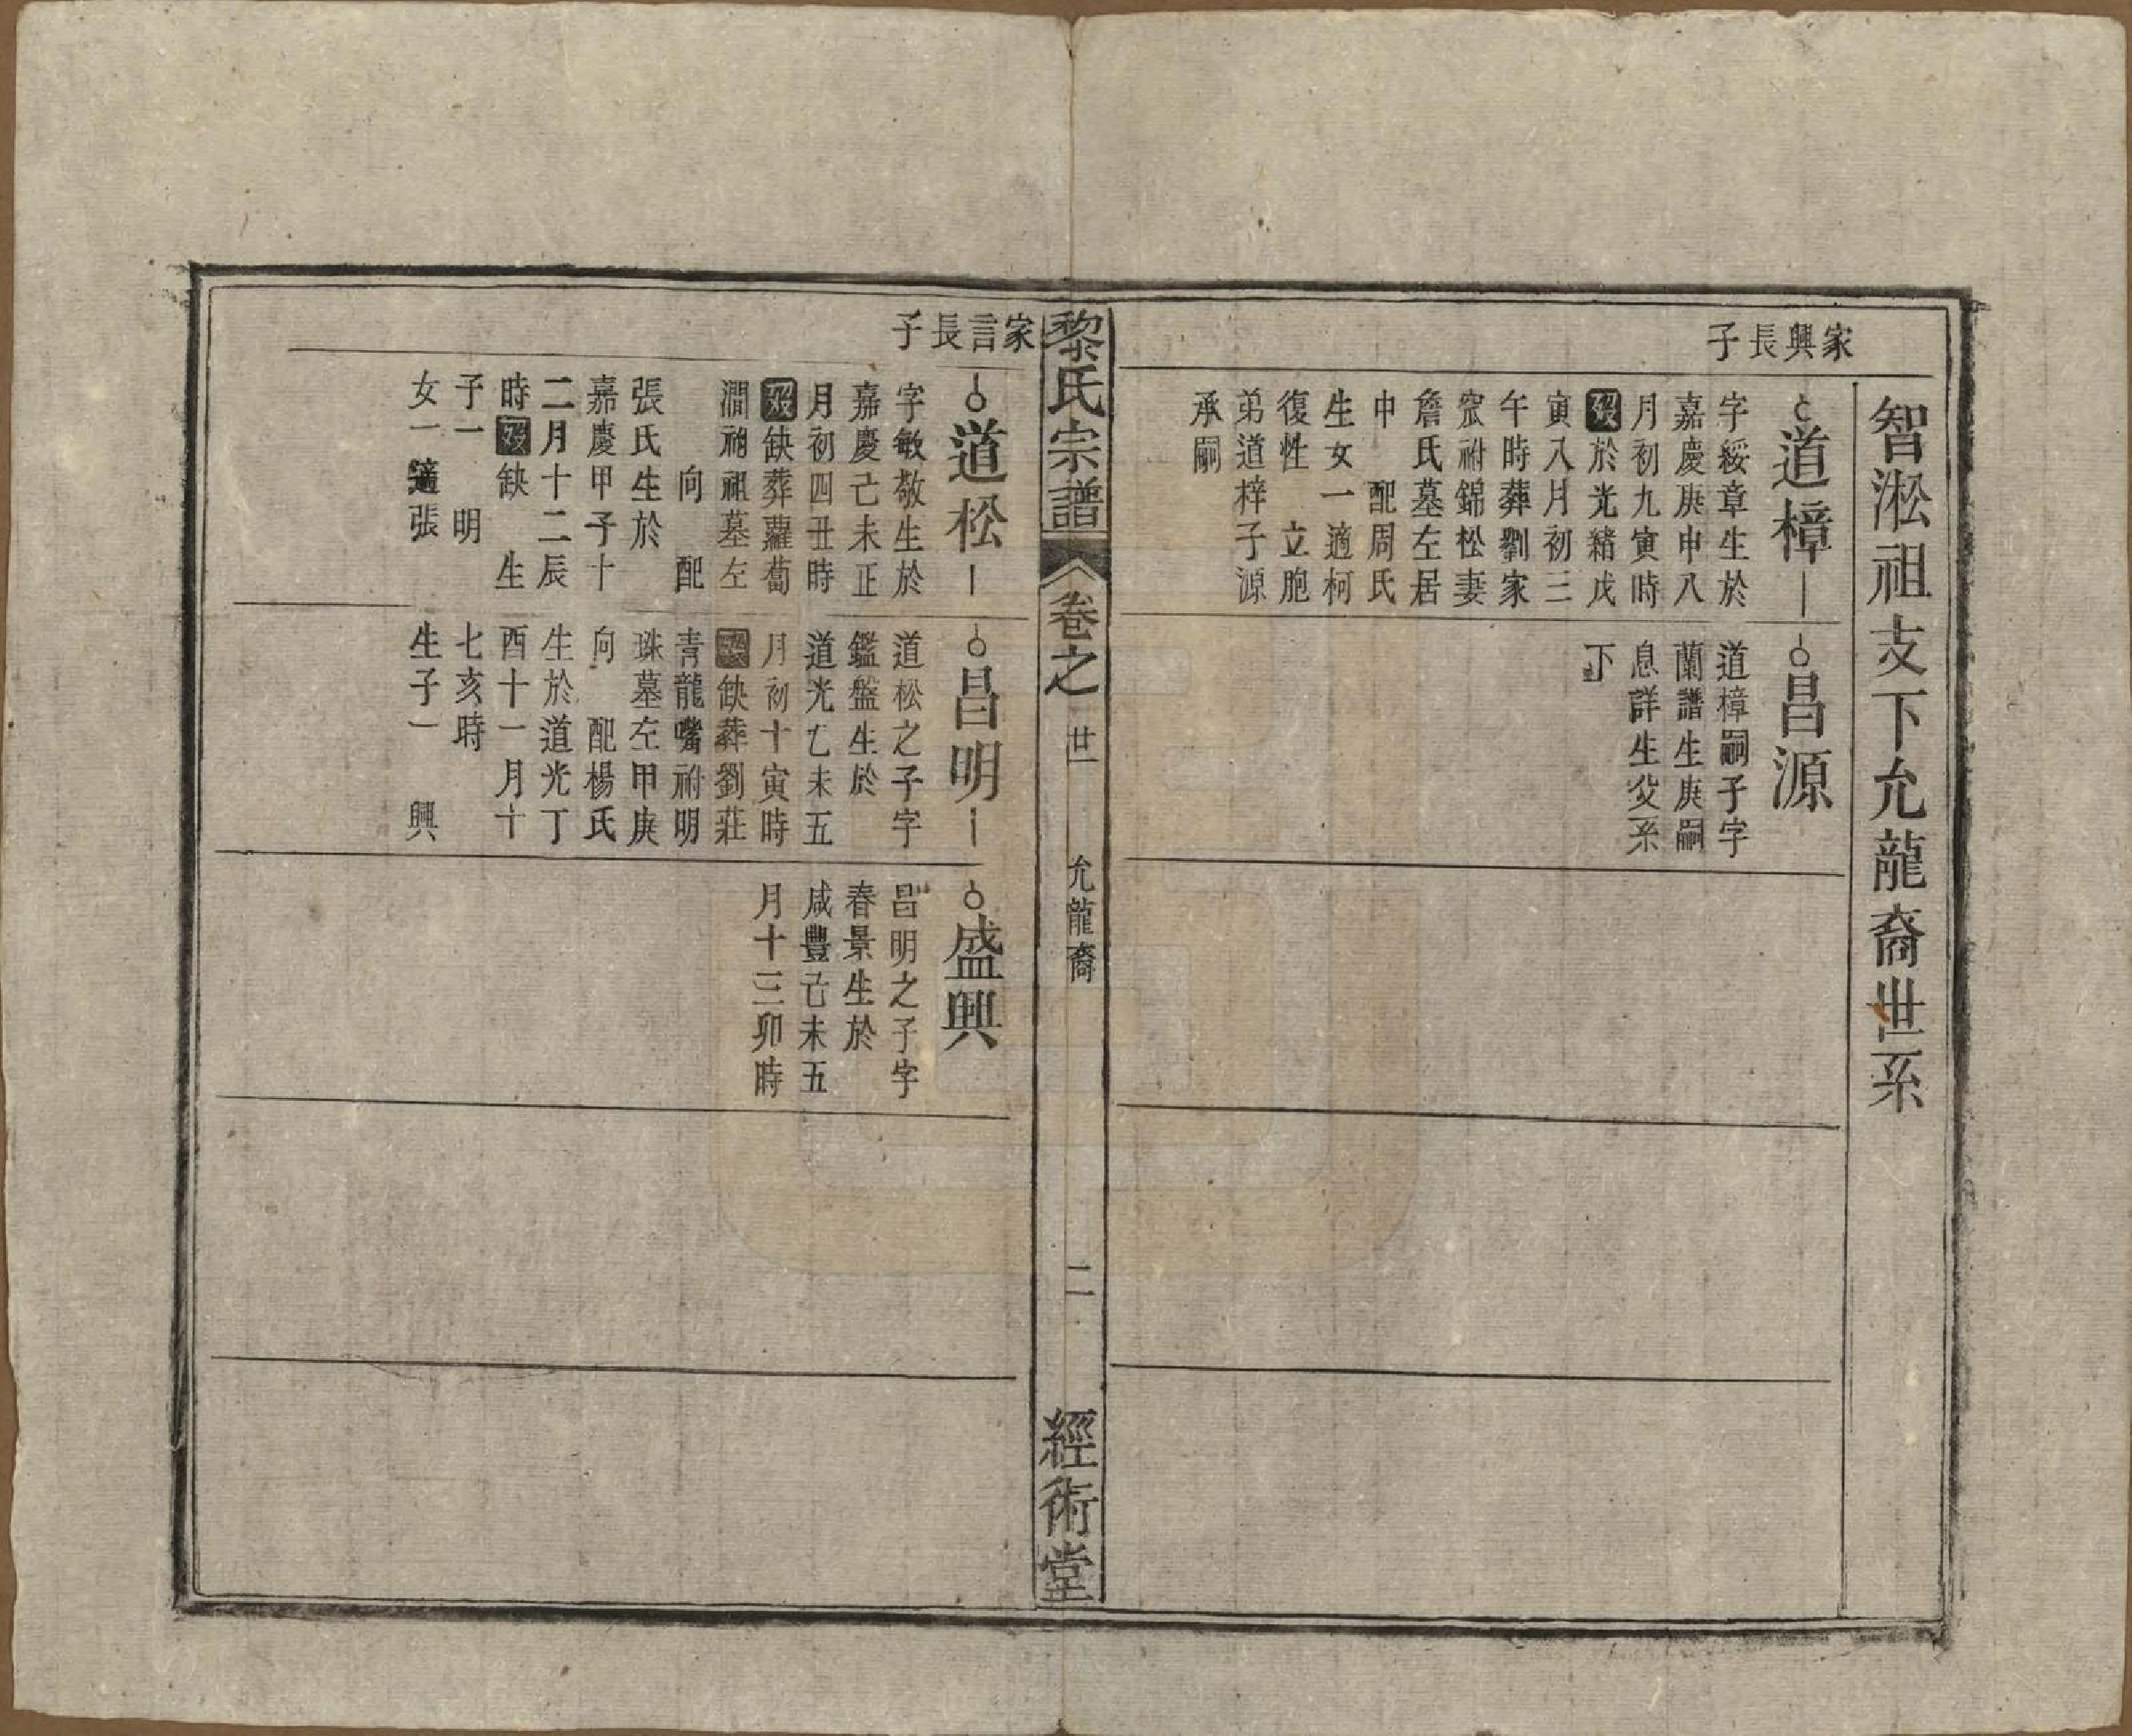 智淞祖支下允龍裔世系
家興長子
道樟
字綏章生於
嘉慶庚申八
月初九寅時
歿於光緒戊
寅八月初三
午時葬劉家
窊祔錦松妻
詹氏墓左居
申　配周氏
生女一適柯
復性　立胞
弟道梓子源
承嗣
昌源
道樟嗣子字
蘭譜生庚嗣
息詳生父系
下
黎氏宗譜
卷之
廿一
允龍裔
二
經術堂
家言長子
道松
字敏敬生於
嘉慶己未正
月初四丑時
歿缺葬蘿蔔
澗祔祖墓左
向　配
張氏生於
嘉慶甲子十
二月十二辰
時歿缺　生
子一　明
女一適張
昌明
道松之子字
鑑盤生於
道光乙未五
月初十寅時
歿缺葬劉莊
青龍嘴祔明
珠墓左甲庚
向　配楊氏
生於道光丁
酉十一月十
七亥時
生子一　興
盛興
昌明之子字
春景生於
咸豐己未五
月十三卯時